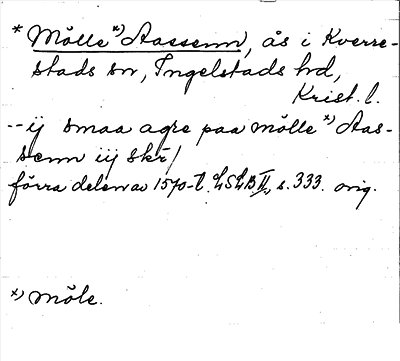 * Mölle x) Aassenn, ås i Kverre-
stads sn, Ingelstads hd,
Krist. l.
-- ij smaa agre paa mölle x) Aas-
senn iij skr/
förra delen av 1570-t. LSLB II, s. 333. orig.
x) möle.